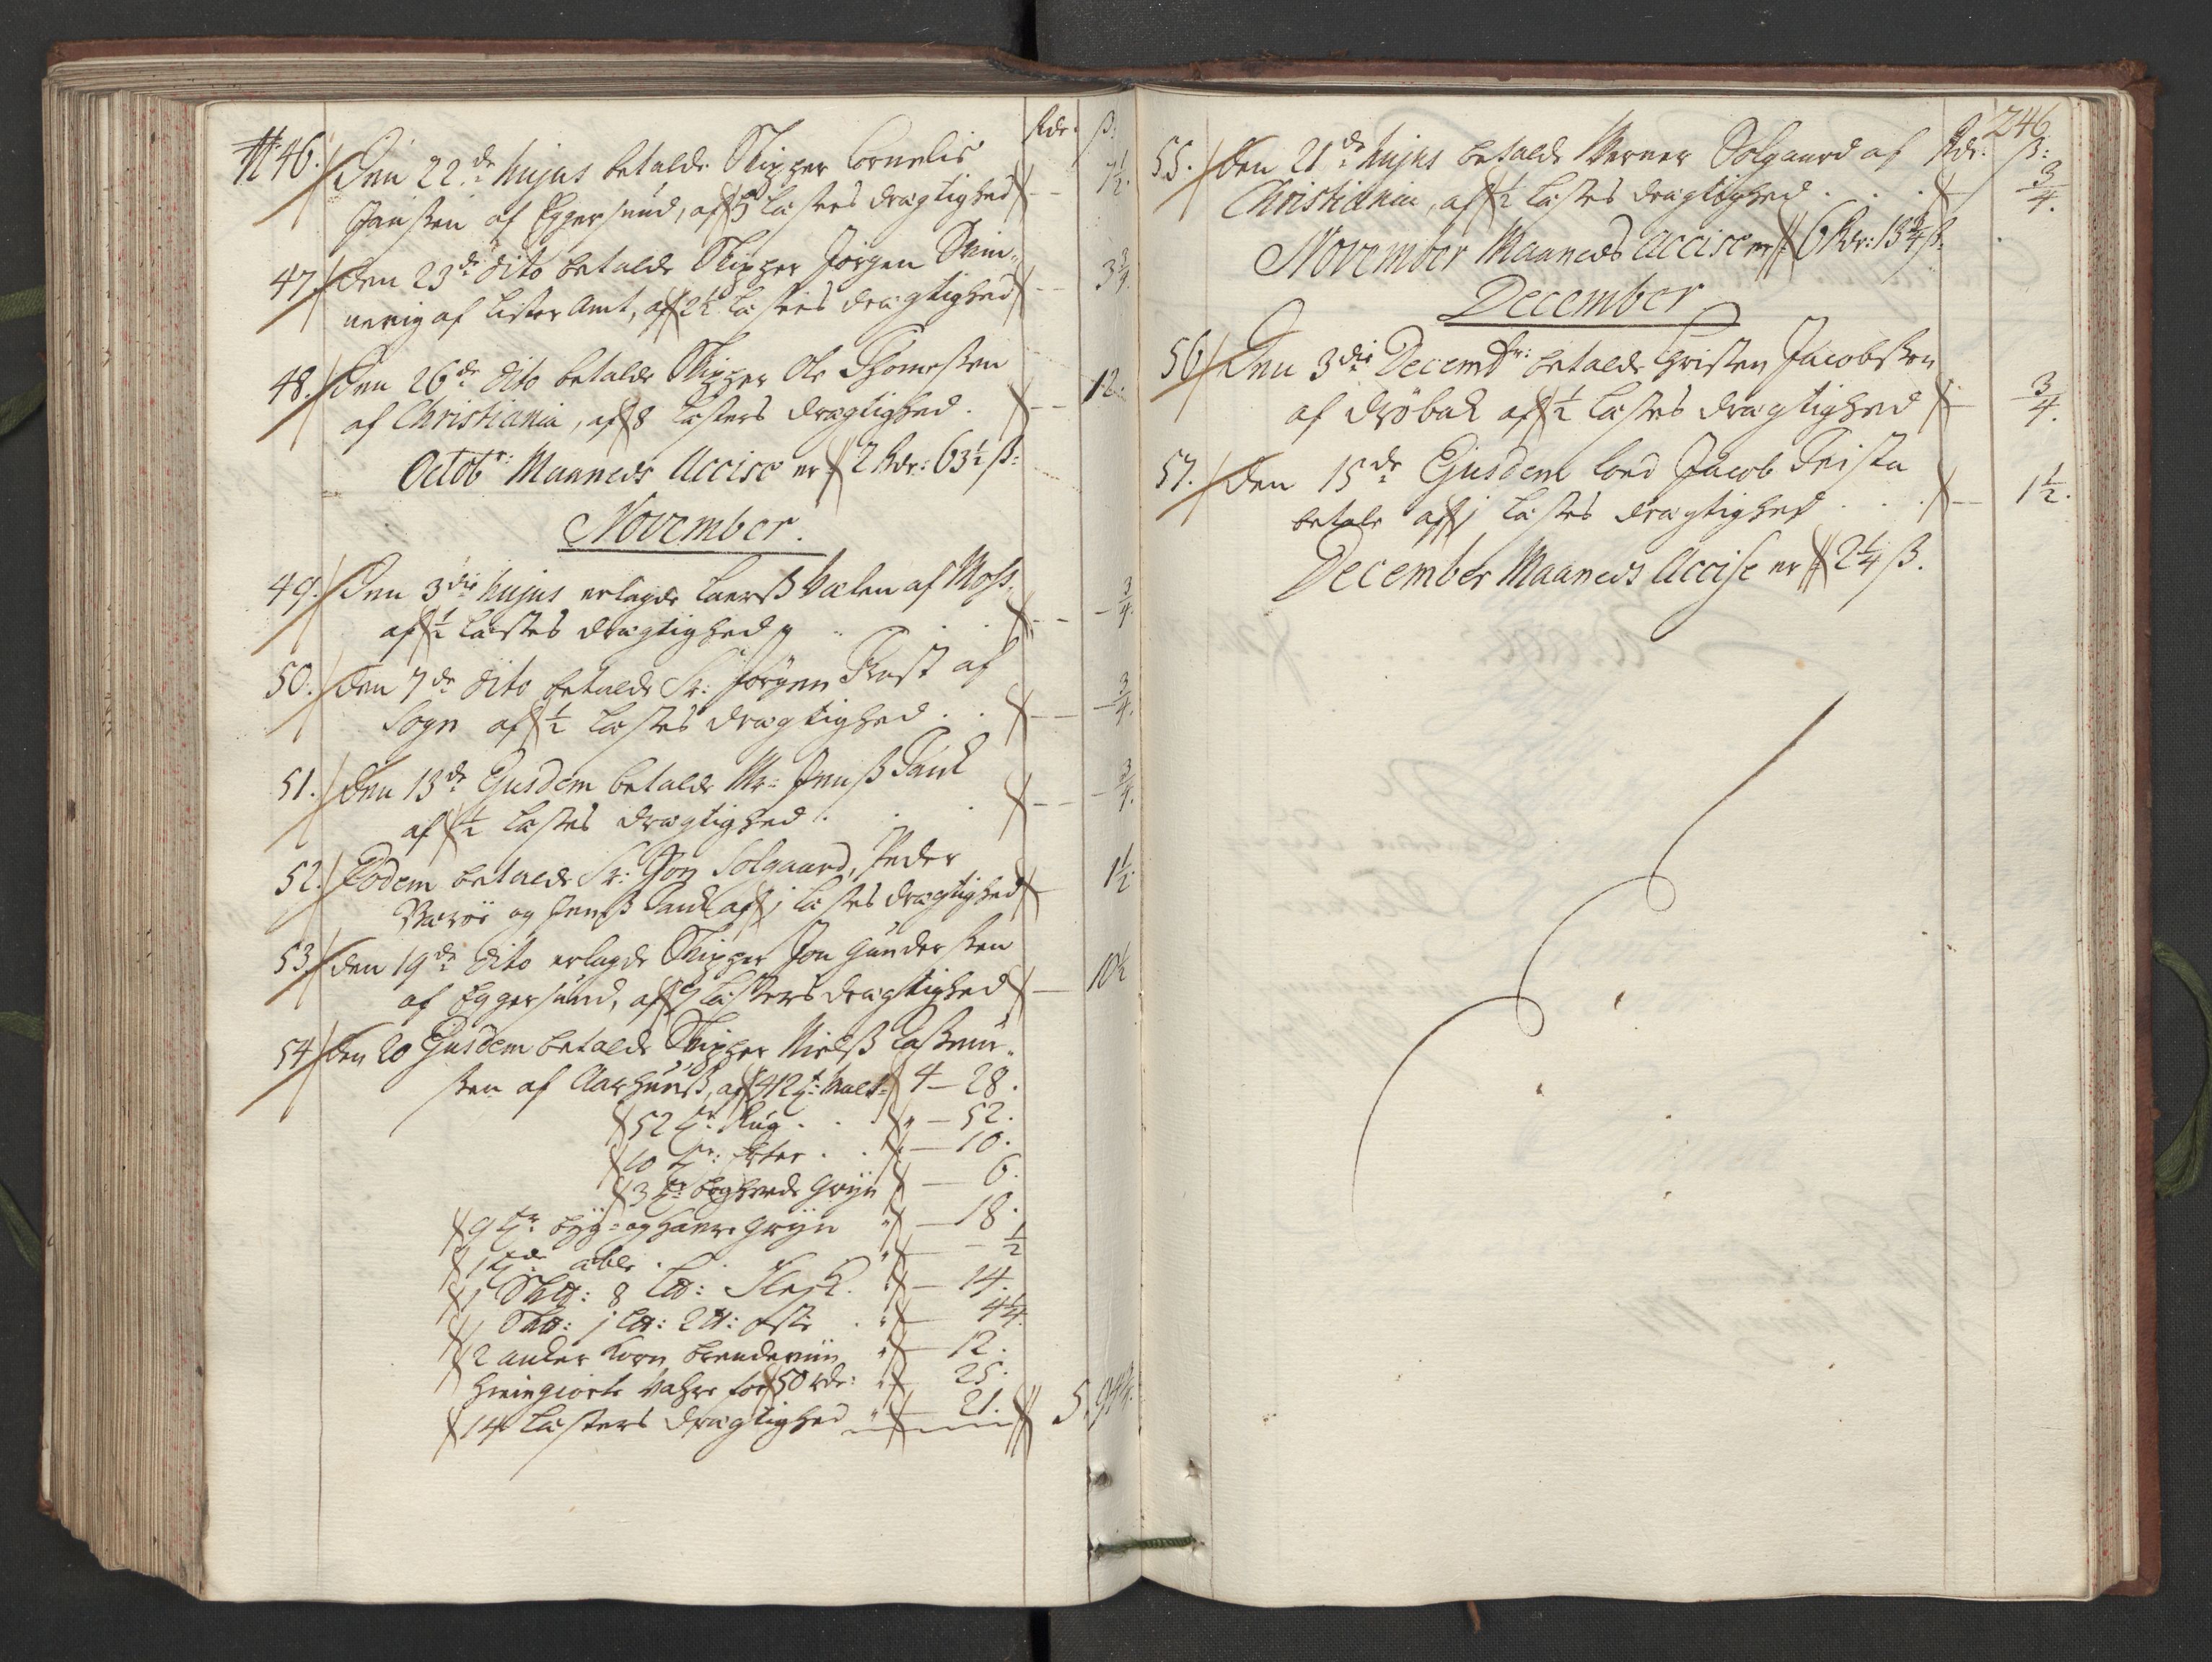 Rdr: ß:
No 46. Den 22de hujus betalde Skipper Cornelis
Janßen af Eggersund, af 5 Læsters drægtighed — 7½.
47. Den 23de dito betalde Skipper Jørgen Svin-
nevig af Lister Amt, af 2½ Læsters drægtighed — 3¾.
48. Den 26de dito betalde Skipper Ole Thomeßen
af Christiania, af 8 Læsters drægtighed. — 12.
Octobr: Maaneds Accise er 2 Rdr: 63½ ß:
November.
49. Den 3die hujus erlagde Laerß Valen af Moss,
af ½ Læstes drægtighed — ¾.
50. Den 7de dito betalde Sr: Jørgen Krost af
Sogn af ½ Læstes drægtighed . . — ¾.
51. Den 13de Ejusdem betalde Mr: Jenß Tank
af ½ Læstes drægtighed . . — ¾.
52. Eodem betalde Sr: Gon Solgaard, Peder
Werøe og Jenß Tank af 1 Læstes drægtighed — 1½
53. Den 19de dito erlagde Skipper Jon Gunderßen
af Eggersund, af 7 Læsters drægtighed — 10½
54. Den 20 Ejusdem betalde Skipper Nielß Raßmu-
ßen af Aarhuuß, af 412 tr: Malt 4 — 28.
52 tr: Rug . . — 52.
10 tr: Erter . . — 10.
3 tr: boghvede Gryn — 6.
9 tr: byg- og Havre Gryn — 18.
1 tde æble . . — ½
1 Sk℔: 8 L℔: Flesk. — 14.
1 Sk℔: 1 L℔: 2 ℔: Oste . — 4¼.
2 anker Korn brendeviin — 12.
hiemgiorte Vahre for 50 rdr: — 25.
14 Læsters drægtighed — 21. 5. 94¾.
246.
Rdr: ß:
55. Den 21de hujus betalde Werner Solgaard af
Christiania, af ½ Læstes drægtighed . . . ¾.
November Maaneds Accise er 6 Rdr: 13¾ ß.
December
56. Den 3die Decembr: betalde Christen Jacobßen
af Drøbak af ½ Læstes drægtighed — ¾.
57. Den 15de Ejusdem lod Jacob Feista
betale af 1 Læstes drægtighed . . . — 1½.
December Maaneds Accise er 2¼ ß.